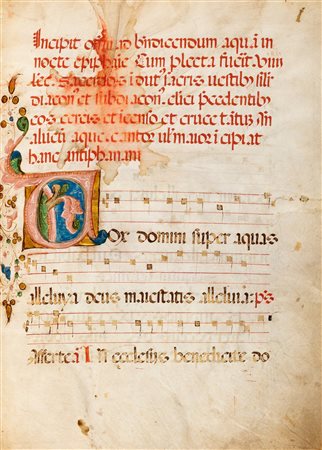 Incipit offm ad bndicendum aquā in
nocte epiphāie Cum pleeta fuerit
lec sacerdos idut sacris vestibꝫ
diacon et subdiacon clici pcedentibꝫ
cos cereis et icenso et cruce
aluctū aque cantor ul maior icipiat
hanc antiphanam
Vox domini super aquas
alleluya deus maiestatis alleluia ps
Afferte a In ecclesiis benedicite do